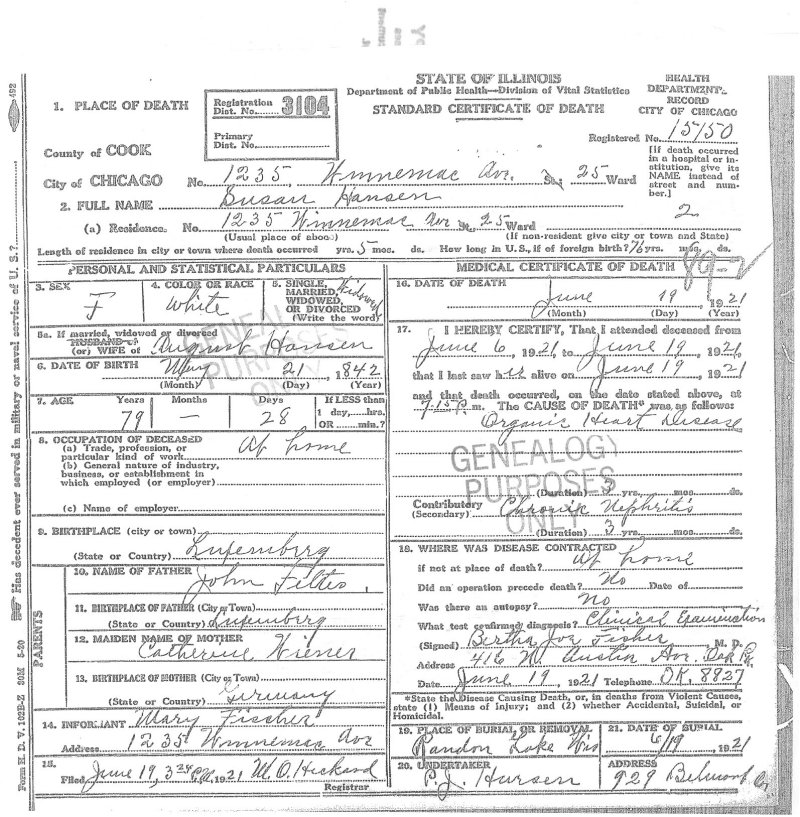 STATE OF ILLINOIS
Department of Public Health—Division of Vital Statistics
STANDARD CERTIFICATE OF DEATH
HEALTH
DEPARTMENT
RECORD
CITY OF CHICAGO
1. PLACE OF DEATH
Registration
Dist. No. 3104
Primary
Dist. No.
Registered No. 15150
County of COOK
City of CHICAGO No. 1235, Winnemac Ave. St.; 25 Ward
[If death occurred
in a hospital or in-
stitution, give its
NAME instead of
street and num-
ber.]
2. FULL NAME Susan Hansen
2
(a) Residence. No. 1235 Winnemac Ave St. 25 Ward
(Usual place of abode) (If non-resident give city or town and State)
Length of residence in city or town where death occurred yrs. 5 mos. ds. How long in U.S., if of foreign birth? 76 yrs. mos. ds.
89-2
PERSONAL AND STATISTICAL PARTICULARS
3. SEX
F
4. COLOR OR RACE
White
5. SINGLE,
MARRIED,
WIDOWED,
OR DIVORCED
(Write the word)
Widowed
5a. If married, widowed or divorced
HUSBAND of
(or) WIFE of August Hansen
6. DATE OF BIRTH May 21, 1842
(Month) (Day) (Year)
7. AGE Years Months Days If LESS than
1 day,....hrs.
OR......min.?
79 — 28
8. OCCUPATION OF DECEASED
(a) Trade, profession, or
particular kind of work At home
(b) General nature of industry,
business, or establishment in
which employed (or employer)
(c) Name of employer
9. BIRTHPLACE (city or town)
(State or Country) Luxemburg
PARENTS
10. NAME OF FATHER
John Feltes
11. BIRTHPLACE OF FATHER (City or Town)
(State or Country) Luxemburg
12. MAIDEN NAME OF MOTHER
Catherine Wiener
13. BIRTHPLACE OF MOTHER (City or Town)
(State or Country) Germany
14. INFORMANT Mary Fischer
Address 1235 Winnemac Ave
15.
Filed June 19, 3 24 PM, 1921 M. O. Heckard
Registrar
MEDICAL CERTIFICATE OF DEATH
16. DATE OF DEATH
June 19, 1921
(Month) (Day) (Year)
17. I HEREBY CERTIFY, That I attended deceased from
June 6, 1921, to June 19, 1921,
that I last saw her alive on June 19, 1921,
and that death occurred, on the date stated above, at
7:15 P. m. The CAUSE OF DEATH* was as follows:
Organic Heart Disease
(Duration) 3 yrs. mos. ds.
Contributory Chronic Nephritis
(Secondary)
(Duration) 3 yrs. mos. ds.
18. WHERE WAS DISEASE CONTRACTED
if not at place of death? At home
Did an operation precede death? No Date of
Was there an autopsy? No
What test confirmed diagnosis? Clinical Examination
(Signed) Bertha Fisher M. D.
Address 416 N. Austin Ave. Oak Pk.
Date June 19, 1921 Telephone OK. 8827
*State the Disease Causing Death, or, in deaths from Violent Causes,
state (1) Means of injury; and (2) whether Accidental, Suicidal, or
Homicidal.
19. PLACE OF BURIAL OR REMOVAL
Random Lake Wis
21. DATE OF BURIAL
6/19, 1921
20. UNDERTAKER
P. J. Hursen
ADDRESS
929 Belmont Av
GENEALOGY
PURPOSES
ONLY
GENEALOGY
PURPOSES
ONLY
Form H. D. V. 102B-Z 20M 5-20 Has decedent ever served in military or naval service of U. S.?
492